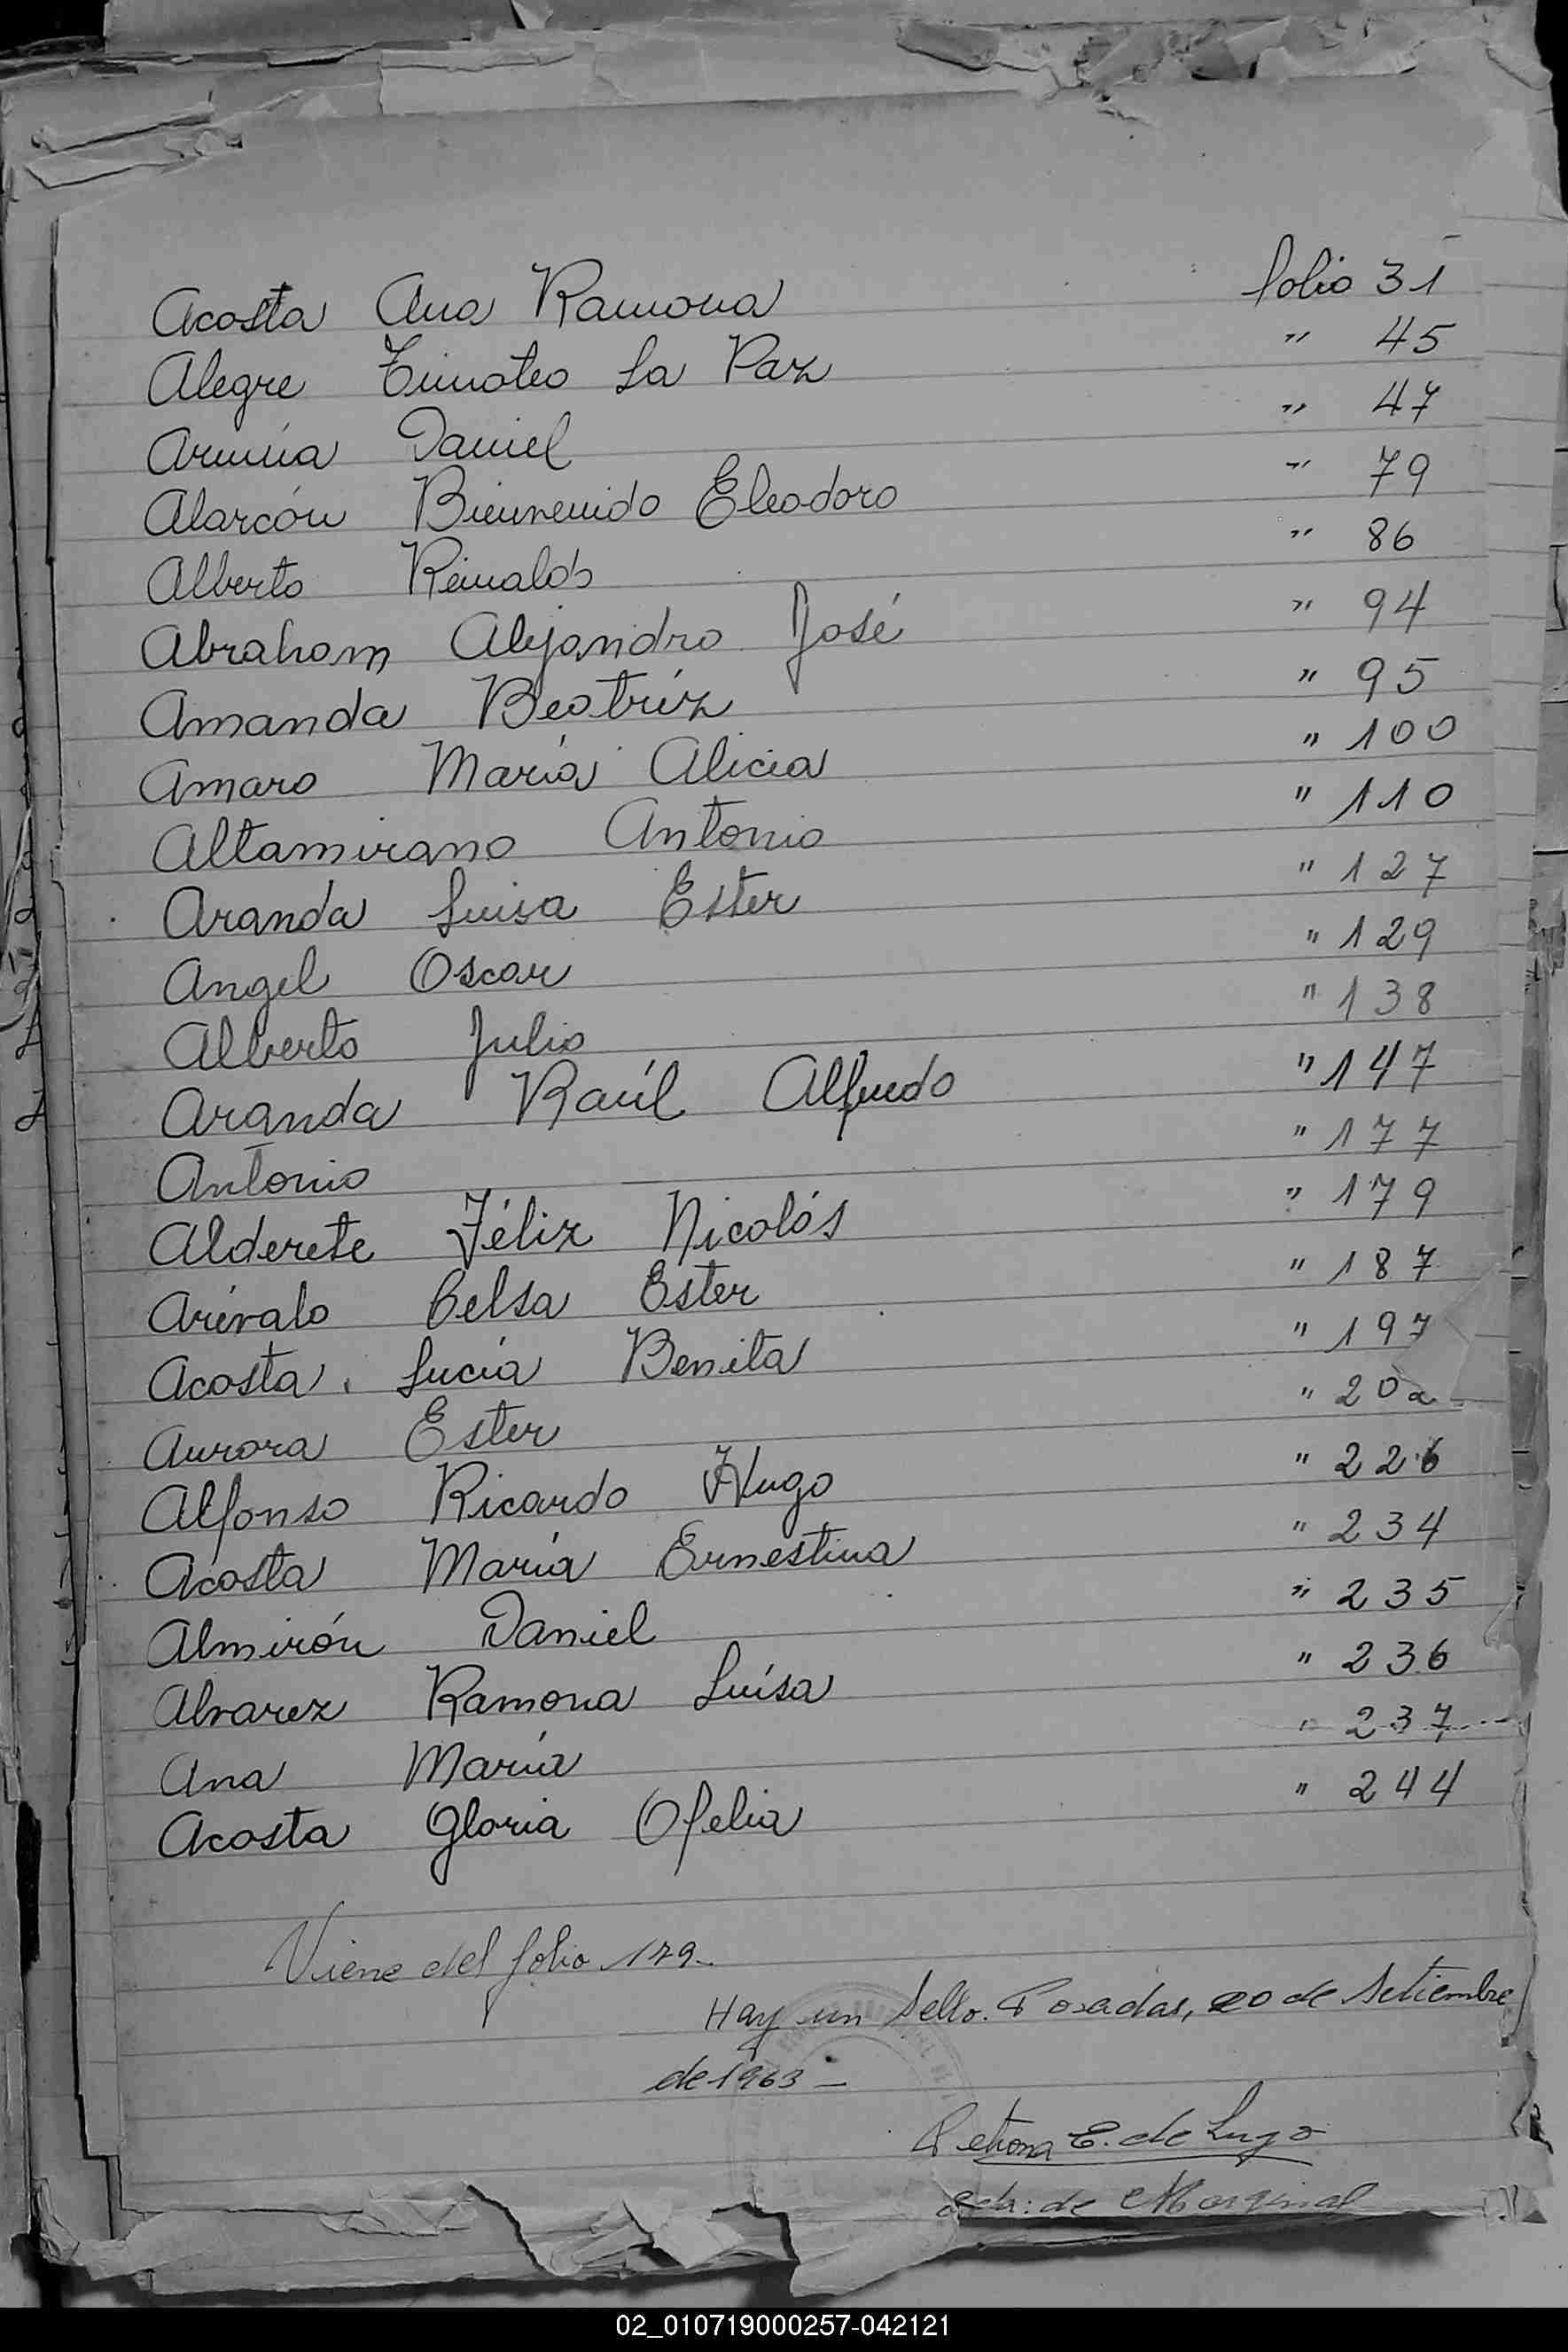 Acosta Ana Ramona folio 31
Alegre Timoteo La Paz " 45
Armúa Daniel " 47
Alarcón Bienvenido Eleodoro " 79
Alberto Reinaldo " 86
Abraham Alejandro José " 94
Amanda Beatríz " 95
Amaro María Alicia " 100
Altamirano Antonio " 110
Aranda Luisa Ester " 127
Angel Oscar " 129
Alberto Julio " 138
Aranda Raúl Alfredo " 147
Antonio " 177
Alderete Féliz Nicolás " 179
Arévalo Celsa Ester " 187
Acosta Lucía Benita " 197
Aurora Ester " 202
Alfonso Ricardo Hugo " 226
Acosta María Ernestina " 234
Almirón Daniel " 235
Alvarez Ramona Luísa " 236
Ana María " 237
Acosta Gloria Ofelia " 244
Viene del folio 179-
Hay un Sello. Posadas, 20 de Setiembre
de 1963 -
Petrona E. de Lugo
de Marginal
02_010719000257-042121